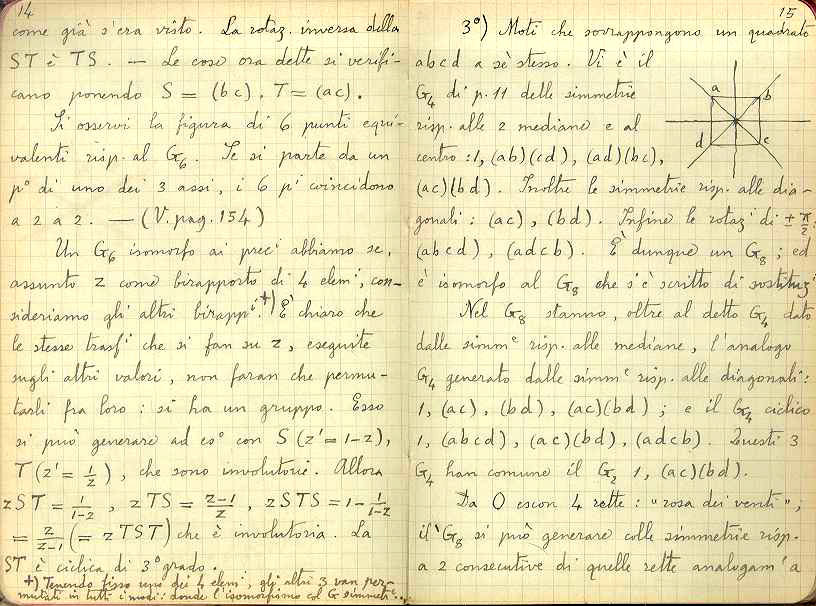 14
come già s'era visto. La rotaz. inversa della
ST è TS. — Le cose ora dette si verifi-
cano ponendo S = (bc), T = (ac).
Si osservi la figura di 6 punti equi-
valenti risp. al G₆. Se si parte da un
pº di uno dei 3 assi, i 6 pⁱ coincidono
a 2 a 2. — (V. pag. 154)
Un G₆ isomorfo ai precⁱ abbiamo se,
assunto z come birapporto di 4 elemⁱ, con-
sideriamo gli altri birappⁱ.+) È chiaro che
le stesse trasfⁱ che si fan su z, eseguite
sugli altri valori, non faran che permu-
tarli fra loro: si ha un gruppo. Esso
si può generare ad esº con S (z' = 1-z),
T (z' = 1/z), che sono involutorie. Allora
zST = 1/(1-z), zTS = (z-1)/z, zSTS = 1 - 1/(1-z)
= z/(z-1) (= zTST) che è involutoria. La
ST è ciclica di 3º grado.
+) Tenendo fisso uno dei 4 elemⁱ, gli altri 3 van per-
mutati in tutti i modi: donde l'isomorfismo col G simmetrᶜ...
15
3º) Moti che sovrappongono un quadrato
abcd a sè stesso. Vi è il
G₄ di p. 11 delle simmetrie
risp. alle 2 mediane e al
centro: 1, (ab)(cd), (ad)(bc),
(ac)(bd). Inoltre le simmetrie risp. alle dia-
gonali: (ac), (bd). Infine le rotazⁱ di ± π/2:
(abcd), (adcb). È dunque un G₈; ed
è isomorfo al G₈ che s'è scritto di sostituzⁱ
Nel G₈ stanno, oltre al detto G₄ dato
dalle simmᵉ risp. alle mediane, l'analogo
G₄ generato dalle simmᵉ risp. alle diagonali:
1, (ac), (bd), (ac)(bd); e il G₄ ciclico
1, (abcd), (ac)(bd), (adcb). Questi 3
G₄ han comune il G₂ 1, (ac)(bd).
Da O escon 4 rette: "rosa dei venti";
il G₈ si può generare colle simmetrie risp.
a 2 consecutive di quelle rette analogamᵗ a
a
b
d
c